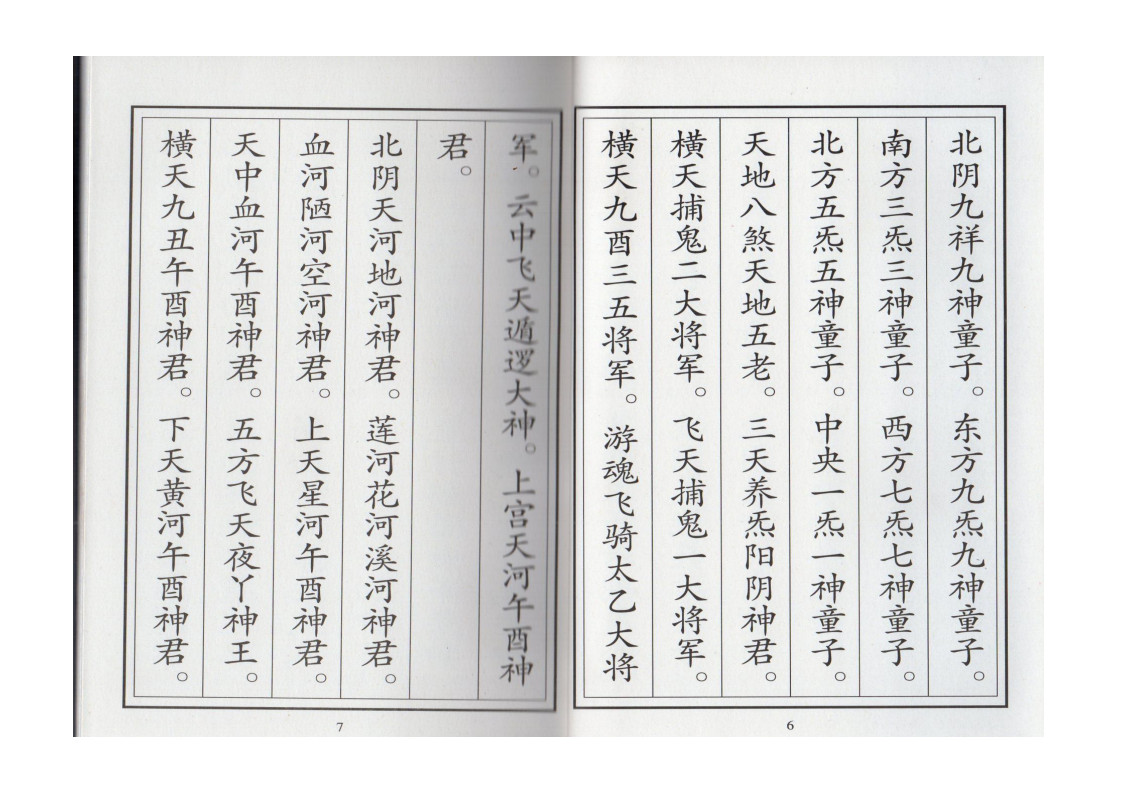 北阴九祥九神童子。东方九炁九神童子。
南方三炁三神童子。西方七炁七神童子。
北方五炁五神童子。中央一炁一神童子。
天地八煞天地五老。三天养炁阳阴神君。
横天捕鬼二大将军。飞天捕鬼一大将军。
横天九酉三五将军。游魂飞骑太乙大将
6
军。云中飞天遁逻大神。上宫天河午酉神
君。
北阴天河地河神君。莲河花河溪河神君。
血河陋河空河神君。上天星河午酉神君。
天中血河午酉神君。五方飞天夜丫神王。
横天九丑午酉神君。下天黄河午酉神君。
7